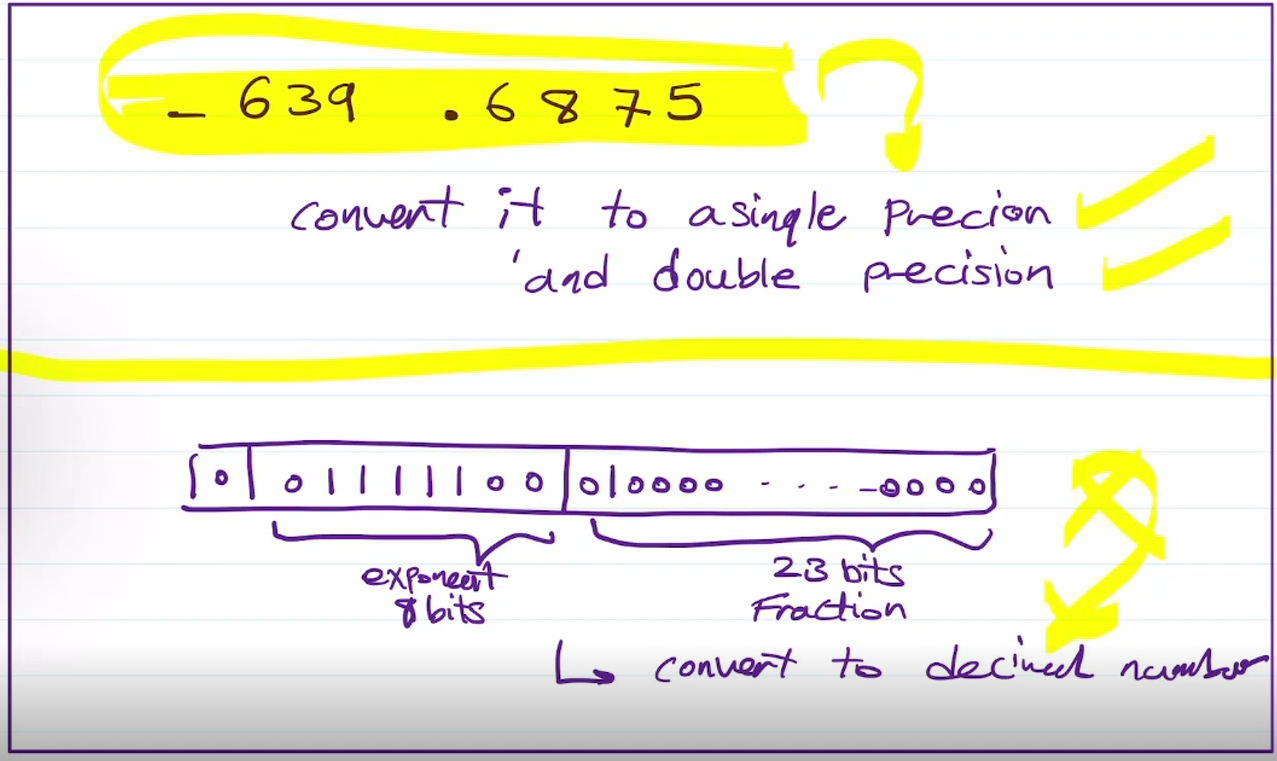 - 639 .6875
convert it to a single Precion
and double precision
0 | 01111100 | 010000 . . . . _0000
exponent 23 bits
8 bits Fraction
↳ convert to decimal number